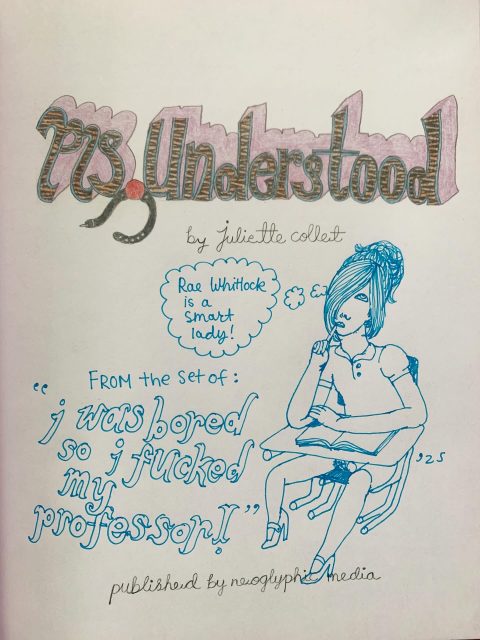 Ms. Understood
by juliette collet
Rae Whitlock
is a
smart
lady!
FROM the set of:
"i was bored
so i fucked
my
professor!"
'25
published by neoglyphic media